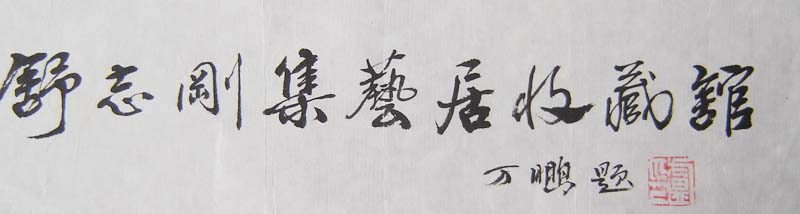 舒志剛集藝居收藏館
万鵬题